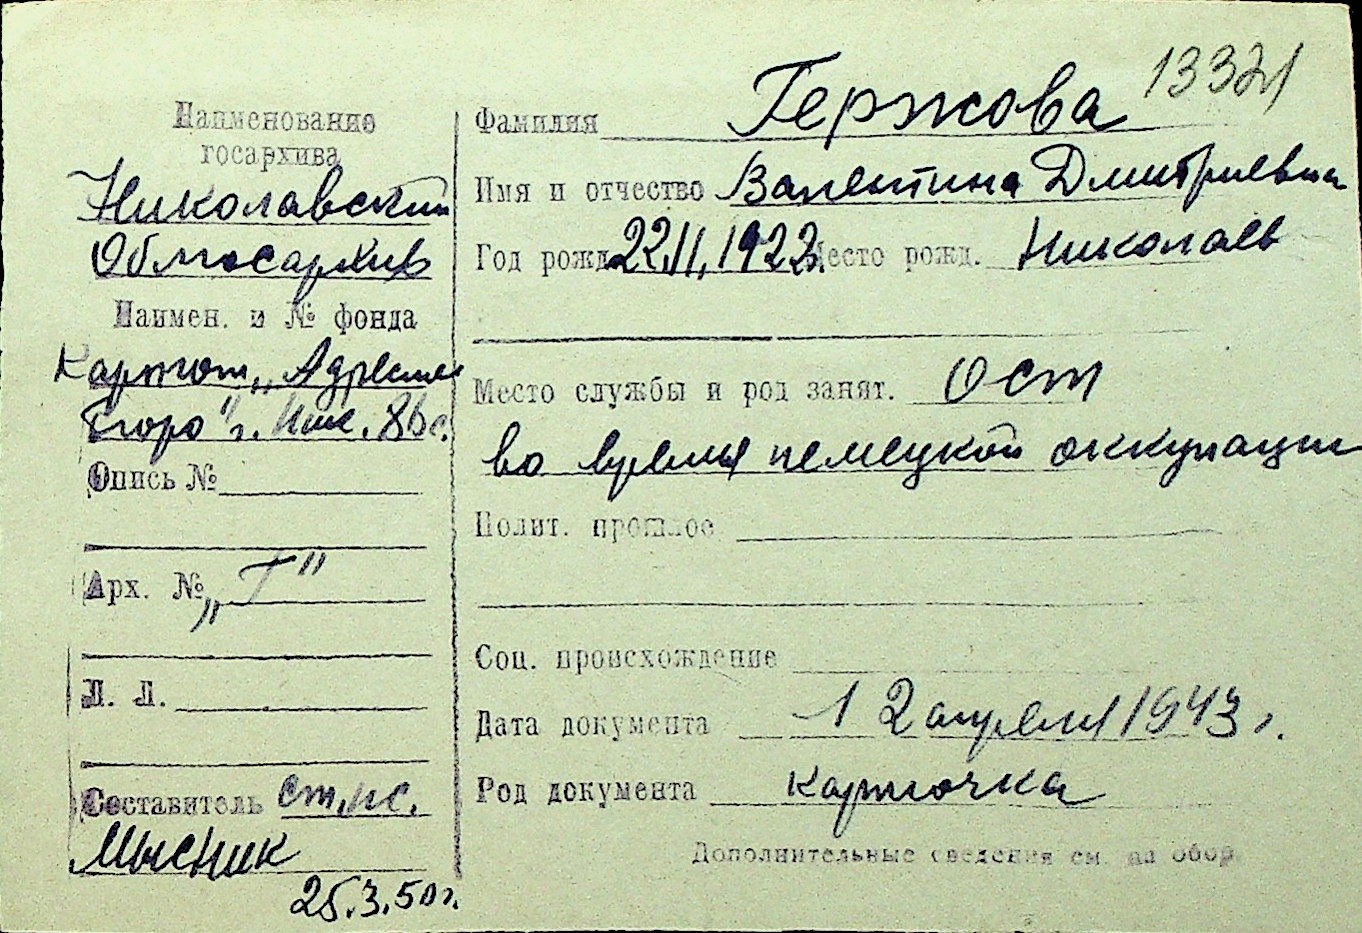 13321
Наименование
госархива
Николавский
Облгосархив
Наимен. и № фонда
Картот. „Адресное
бюро" г. Ник.
Опись №
Арх. № „Г"
Л. Л.
Составитель ст. н.с.
Мысник
25.3.50 г.
Фамилия Гержова
Имя и отчество Валентина Дмитриевна
Год рожд. 22.II.1922. Место рожд. Николаев
Место службы и род занят. Ост
во время немецкой оккупации
Полит. прошлое
Соц. происхождение
Дата документа 12 апреля 1943 г.
Род документа карточка
Дополнительные сведения см. на обор.